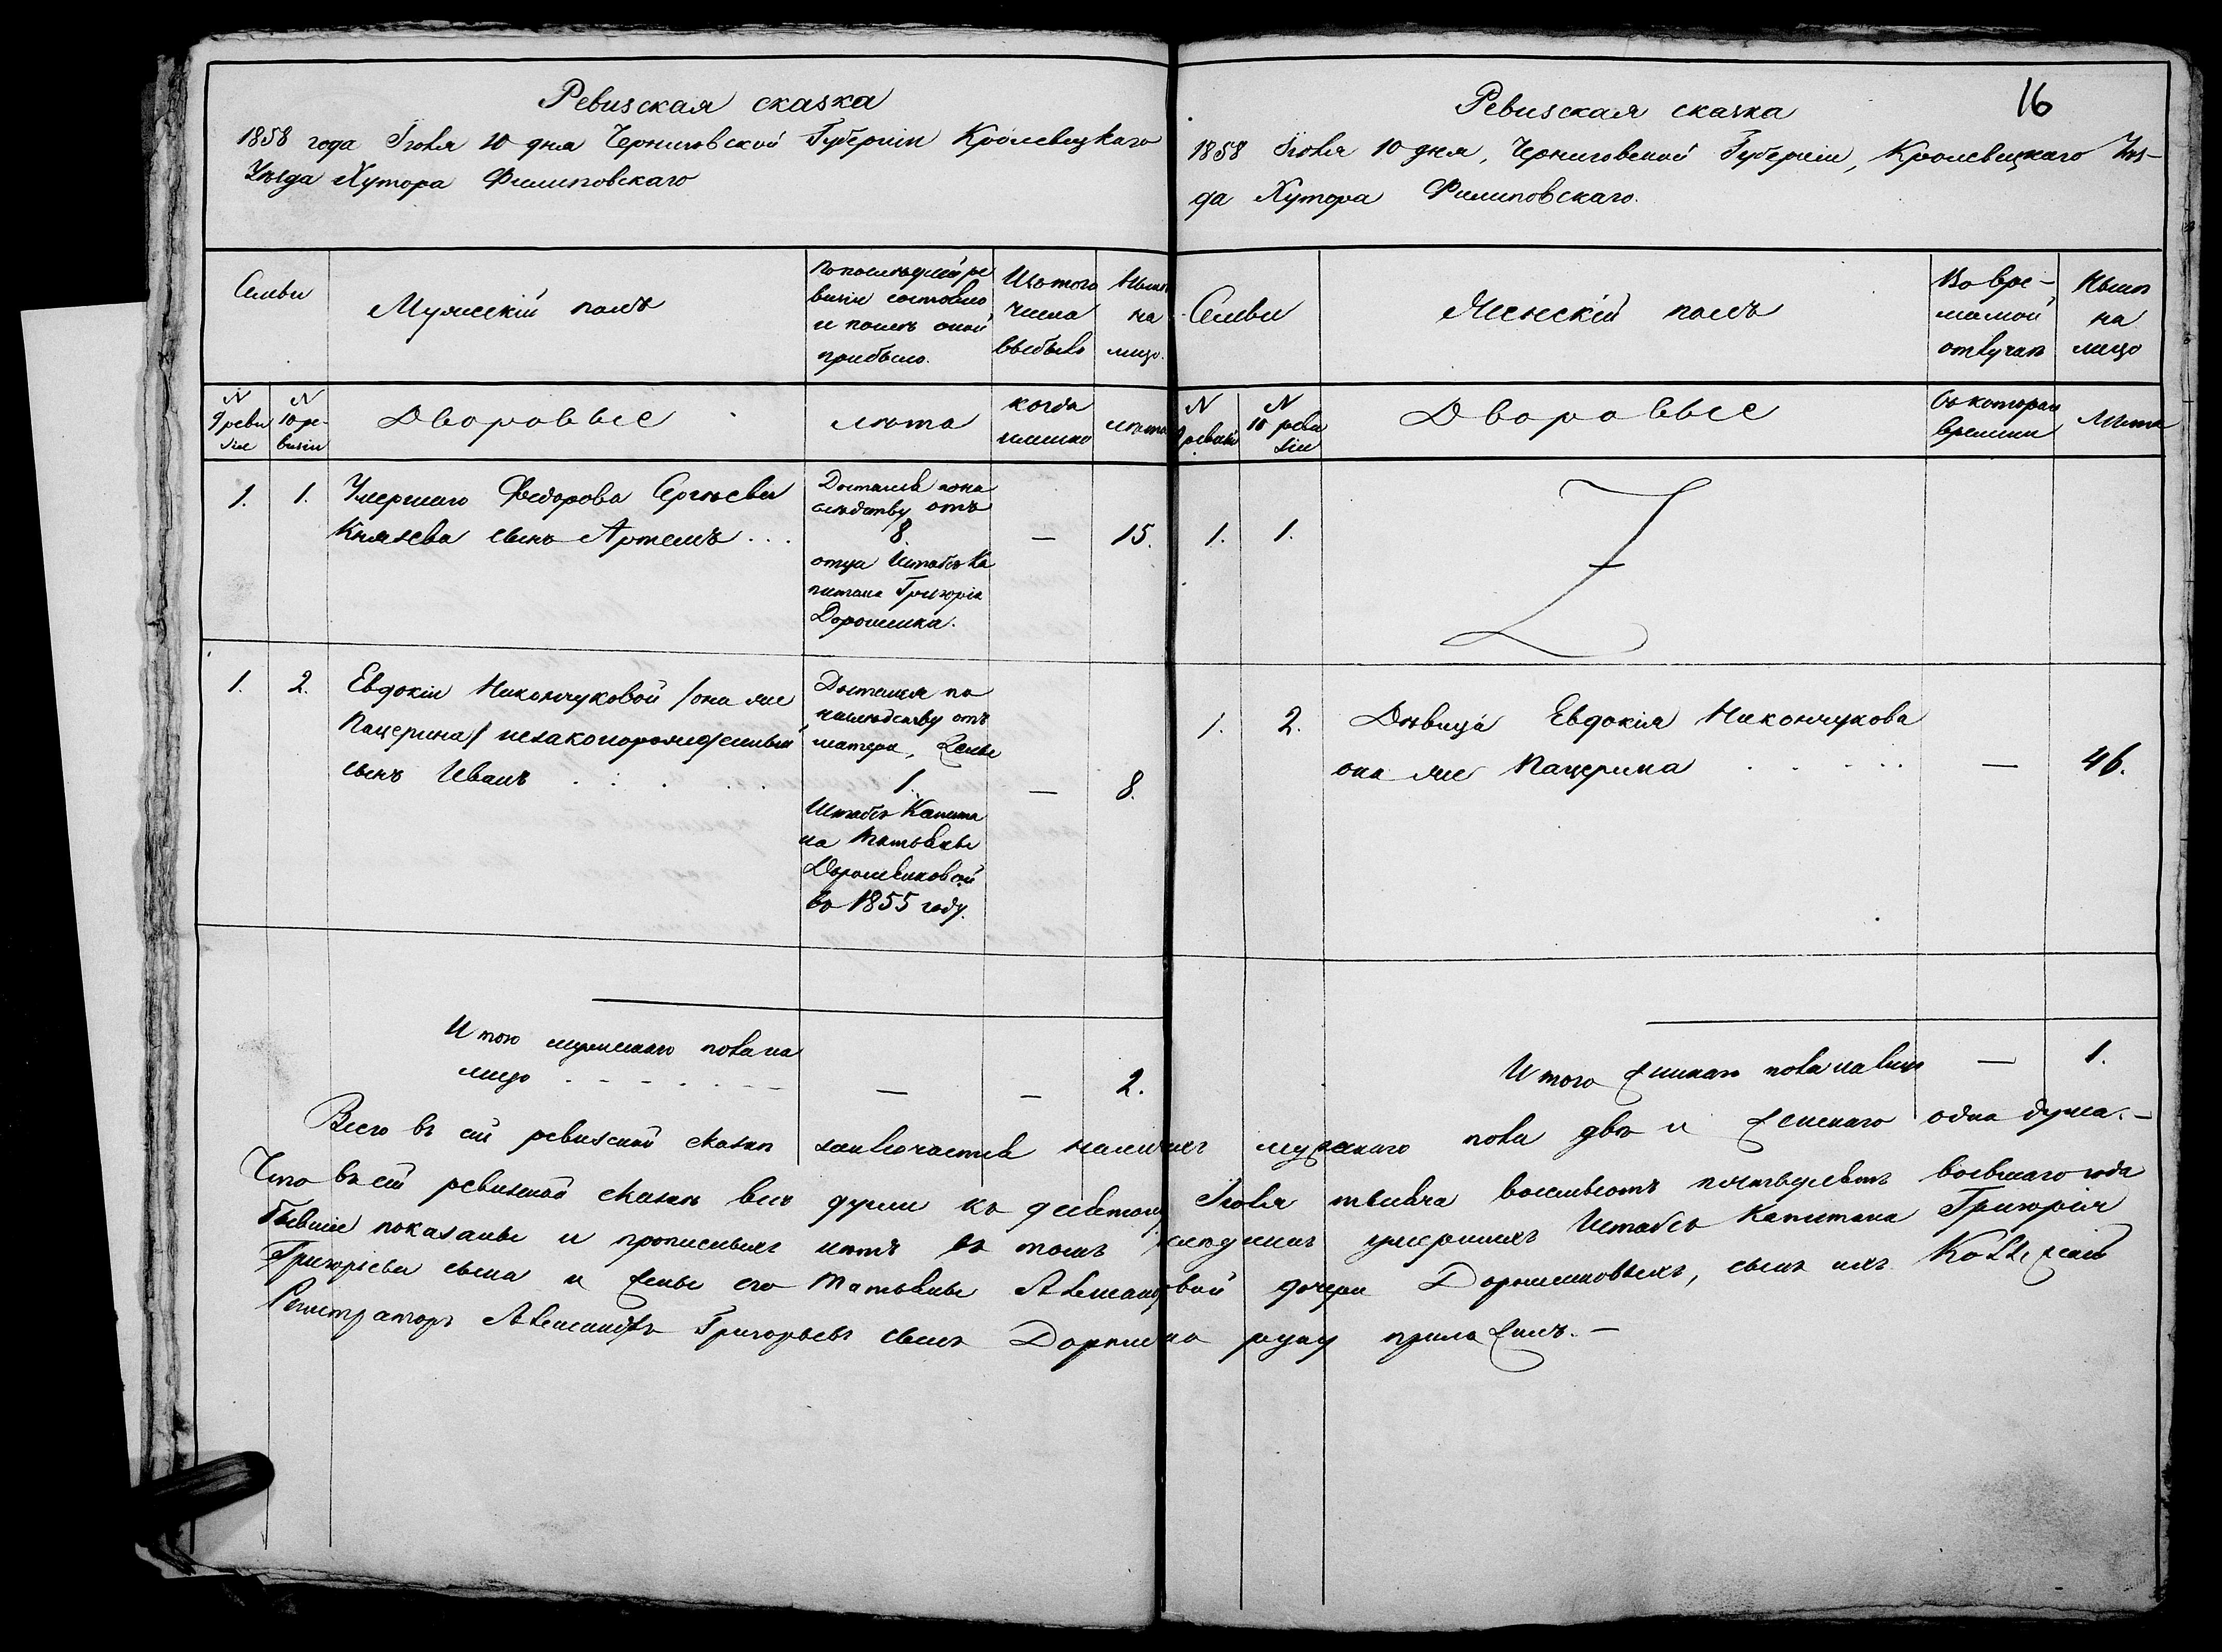 Ревизская сказка
1858 года Іюля 10 дня Черниговской Губерніи Кролевецкаго
Уѣзда Хутора Филиповскаго
Семьи
Мужескій полъ
По послѣдней ре
визіи состояло
и послѣ оной
прибыло.
Изъ того
числа
выбыло
Нынѣ
на
лицо.
N
9 реви
зіи
N
10 ре-
визіи
Дворовые
лѣта
когда
именно
лѣта
1.
1.
Умершаго Федорова Сергѣева
Князева сынъ Артемъ...
Достался по на
слѣдству отъ
8.
отца Штабсъ Ка
питана Григорія
Дорошенка.
—
15.
1.
2.
Евдокіи Никончуковой /она же
Пацерина/ незаконорожденный
сынъ Иванъ
Достался по
наслѣдству отъ
матери, жены
1.
Штабсъ Капита
на Татьяны
Дорошенковой
въ 1855 году.
—
8.
Итого мужескаго пола на
лицо
—
—
2.
Ревизская сказка
16
1858 Іюля 10 дня, Черниговской Губерніи, Кролевецкаго Уѣз-
да Хутора Филиповскаго.
Семьи
Женскій полъ
Во вре-
мянной
отлучкѣ
Нынѣ
на
лицо
N
9 ревизіи
N
10 реви
зіи
Дворовые
Съ котораго
времени
Лѣта
1.
1.
1.
2.
Дѣвица Евдокія Никончукова
она же Пацерина
—
46.
Итого женскаго пола на лицо
—
1.
Всего въ сей ревизской сказкѣ заключается наличныхъ мужскаго пола двѣ и женскаго одна душа.—
Что въ сей ревизской сказкѣ всѣ души къ десятому Іюля тысяча восемьсотъ пятьдесятъ восьмаго года
бывшіе показаны и прописныхъ нѣтъ въ томъ умершихъ Штабсъ Капитана Григорія
Григорьева сына и жены его Татьяны Александровой дочери Дорошенковыхъ, сынъ ихъ Коллежскій
Регистраторъ Александръ Григорьевъ сынъ Дорошенко руку приложилъ.—